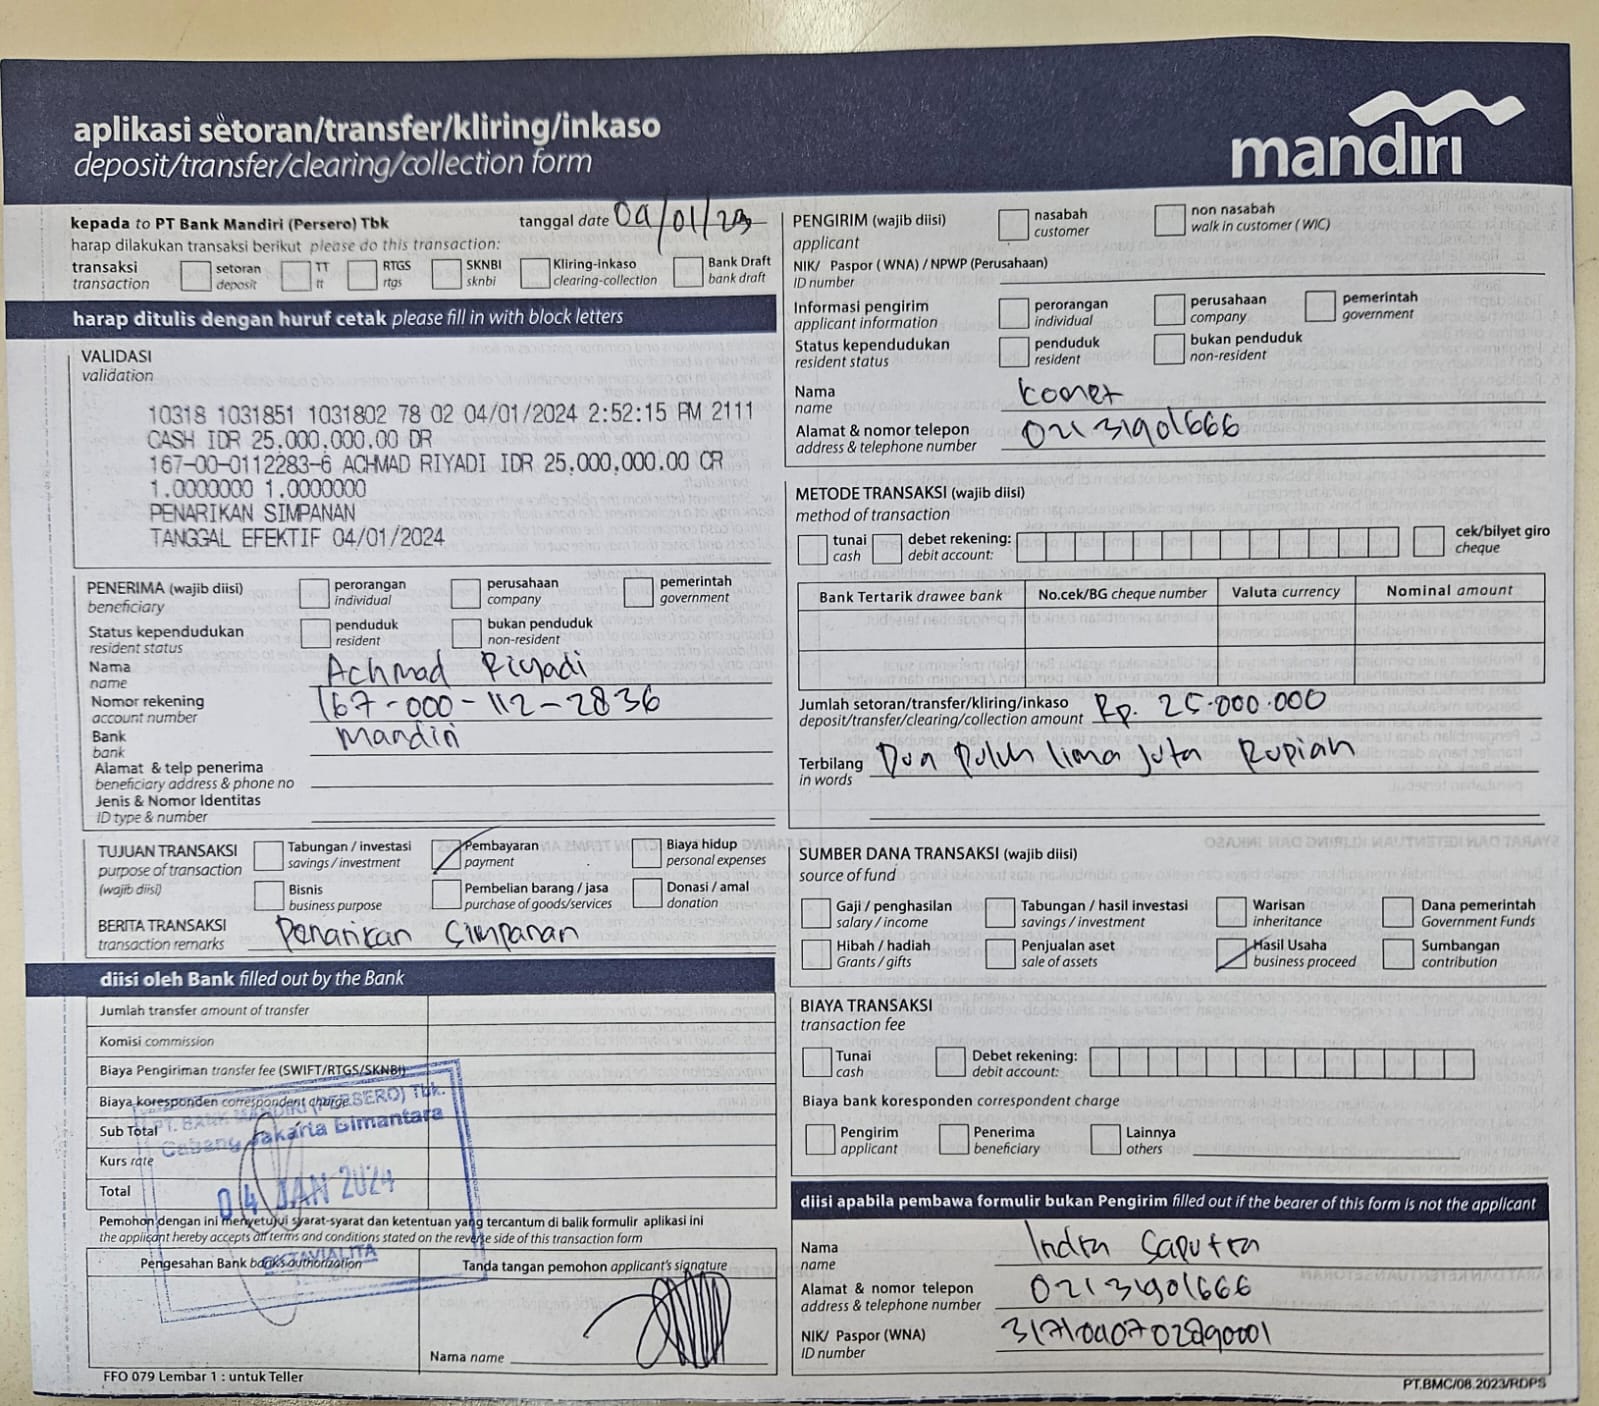 aplikasi setoran/transfer/kliring/inkaso
deposit/transfer/clearing/collection form
mandiri
kepada to PT Bank Mandiri (Persero) Tbk
tanggal date
harap dilakukan transaksi berikut please do this transaction:
transaksi
transaction
setoran
deposit
TT
tt
RTGS
rtgs
SKNBI
sknbi
Kliring-inkaso
clearing-collection
Bank Draft
bank draft
harap ditulis dengan huruf cetak please fill in with block letters
VALIDASI
validation
10318 1031851 1031802 78 02 04/01/2024 2:52:15 PM 2111
CASH IDR 25,000,000.00 DR
167-00-0112283-6 ACHMAD RIYADI IDR 25,000,000.00 CR
1.0000000 1.0000000
PENARIKAN SIMPANAN
TANGGAL EFEKTIF 04/01/2024
PENERIMA (wajib diisi)
beneficiary
perorangan
individual
perusahaan
company
pemerintah
government
Status kependudukan
resident status
penduduk
resident
bukan penduduk
non-resident
Nama
name
Achmad Riyadi
Nomor rekening
account number
167-000-112-2836
Bank
bank
Mandiri
Alamat & telp penerima
beneficiary address & phone no
Jenis & Nomor Identitas
ID type & number
TUJUAN TRANSAKSI
purpose of transaction
(wajib diisi)
Tabungan / investasi
savings / investment
Pembayaran
payment
Biaya hidup
personal expenses
Bisnis
business purpose
Pembelian barang / jasa
purchase of goods/services
Donasi / amal
donation
BERITA TRANSAKSI
transaction remarks
Penarikan Simpanan
diisi oleh Bank filled out by the Bank
Jumlah transfer amount of transfer
Komisi commission
Biaya Pengiriman transfer fee (SWIFT/RTGS/SKNBI)
Biaya koresponden correspondent charge
Sub Total
Kurs rate
Total
PT. BANK MANDIRI (PERSERO) Tbk.
Cabang Jakarta Bimantara
04 JAN 2024
OKTAVIALITA
Pemohon dengan ini menyetujui syarat-syarat dan ketentuan yang tercantum di balik formulir aplikasi ini
the applicant hereby accepts all terms and conditions stated on the reverse side of this transaction form
Pengesahan Bank bank's authorization
Tanda tangan pemohon applicant's signature
Nama name
FFO 079 Lembar 1 : untuk Teller
PENGIRIM (wajib diisi)
applicant
nasabah
customer
non nasabah
walk in customer (WIC)
NIK/ Paspor (WNA) / NPWP (Perusahaan)
ID number
Informasi pengirim
applicant information
perorangan
individual
perusahaan
company
pemerintah
government
Status kependudukan
resident status
penduduk
resident
bukan penduduk
non-resident
Nama
name
Alamat & nomor telepon
address & telephone number
02131901666
METODE TRANSAKSI (wajib diisi)
method of transaction
tunai
cash
debet rekening:
debit account:
cek/bilyet giro
cheque
Bank Tertarik drawee bank
No.cek/BG cheque number
Valuta currency
Nominal amount
Jumlah setoran/transfer/kliring/inkaso
deposit/transfer/clearing/collection amount
Rp. 25.000.000
Terbilang
in words
Dua Puluh lima Juta Rupiah
SUMBER DANA TRANSAKSI (wajib diisi)
source of fund
Gaji / penghasilan
salary / income
Tabungan / hasil investasi
savings / investment
Warisan
inheritance
Dana pemerintah
Government Funds
Hibah / hadiah
Grants / gifts
Penjualan aset
sale of assets
Hasil Usaha
business proceed
Sumbangan
contribution
BIAYA TRANSAKSI
transaction fee
Tunai
cash
Debet rekening:
debit account:
Biaya bank koresponden correspondent charge
Pengirim
applicant
Penerima
beneficiary
Lainnya
others
diisi apabila pembawa formulir bukan Pengirim filled out if the bearer of this form is not the applicant
Nama
name
Indra Saputra
Alamat & nomor telepon
address & telephone number
02131901666
NIK/ Paspor (WNA)
ID number
3171040702890001
PT.BMC/08.2023/RDPS